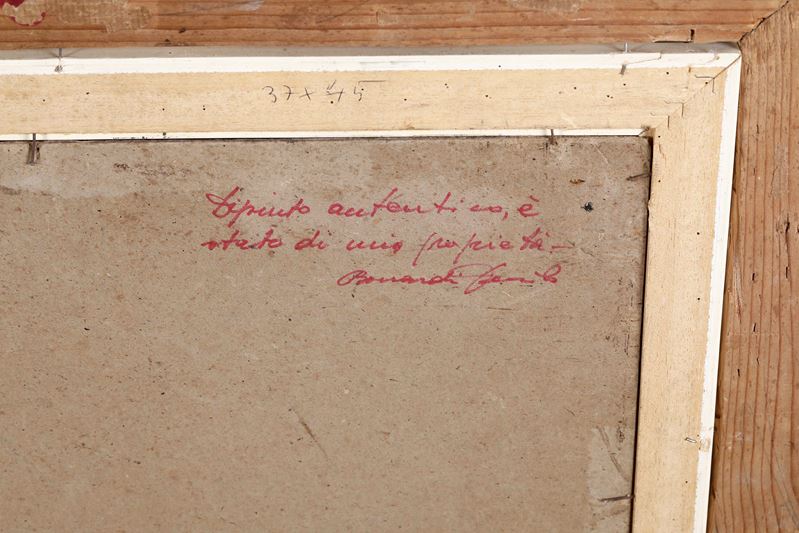 37 x 45
Dipinto autentico, è
stato di mia proprietà –
Bonardi